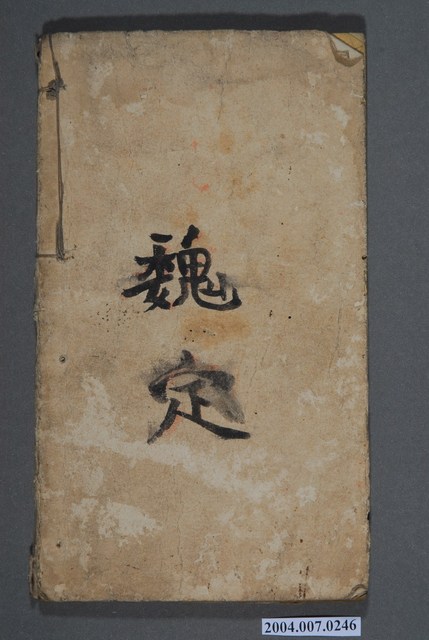 魏
定
2004.007.0246